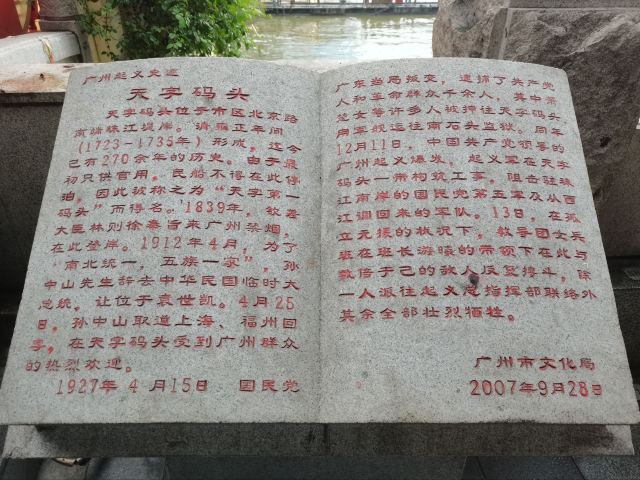 广州起义史迹
天字码头
天字码头位于市区北京路
南端珠江堤岸。清雍正年间
(1723—1735年)形成，迄今
已有270余年的历史。由于最
初只供官用，民船不得在此停
泊，因此被称之为“天字第一
码头”而得名。1839年，钦差
大臣林则徐奉旨来广州禁烟，
在此登岸。1912年4月，为了
“南北统一，五族一家”，孙
中山先生辞去中华民国临时大
总统，让位于袁世凯。4月25
日，孙中山取道上海、福州回
粤，在天字码头受到广州群众
的热烈欢迎。
1927年4月15日 国民党
广东当局叛变，逮捕了共产党
人和革命群众千余人，其中萧
楚女等许多人被押往天字码头
用军舰运往南石头监狱。同年
12月11日，中国共产党领导的
广州起义爆发，起义军在天字
码头一带构筑工事，阻击驻珠
江南岸的国民党第五军及从西
江调回来的军队。13日，在孤
立无援的状况下，教导团女兵
班在班长游曦的带领下在此与
数倍于己的敌人反复搏斗，除
一人派往起义总指挥部联络外
其余全部壮烈牺牲。
广州市文化局
2007年9月28日